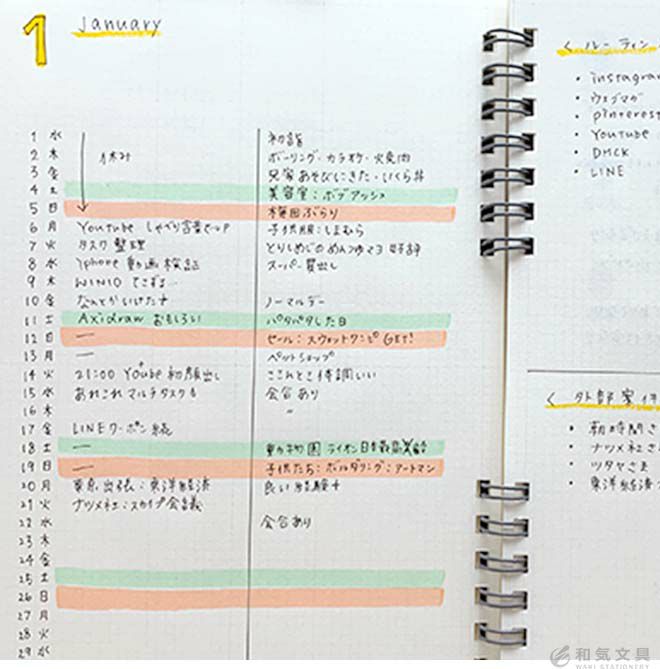 1 January
1 水 初詣
2 木 休み ボーリング・カラオケ・火焼肉
3 金
4 土 美容室：ボブアッシュ
5 日 梅田ぶらり
6 月 Youtube しゃべり言葉でUP 子供服：しまむら
7 火 タスク整理 とりしめじのめんつゆマヨ好評
8 水 iphone動画検証 スーパー買出し
9 木 WIN10 てこずる…
10 金 なんとかいけた ノーマルデー
11 土 Axidraw おもしろい バタバタした日
12 日 ー セール：スウェットワンピGET!
13 月 ー ペットショップ
14 火 21:00 Youtube初顔出し ここんとこ体調いい
15 水 あれこれマルチタスク 会合あり
16 木 〃
17 金 LINEクーポン続
18 土 ー 動物園 ライオン日本最高齢
19 日 ー 子供たち：ボルダリング：アートマン
20 月 東京出張：東洋経済 良い経験
21 火 ナツメ社：スカイプ会議
22 水 会合あり
23 木
24 金
25 土
26 日
27 月
28 火
29 水
＜ルーティン
・instagra
・ウェブマガ
・pinterest
・Youtube
・DMCK
・LINE
＜外部案件
・朝時間さ
・ナツメ社さ
・ツタヤさま
・東洋経済
和気文具
WAKI STATIONERY